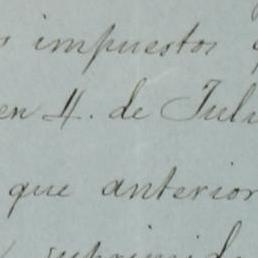 impuestos
en 4. de Juli
que anterior
suprimid